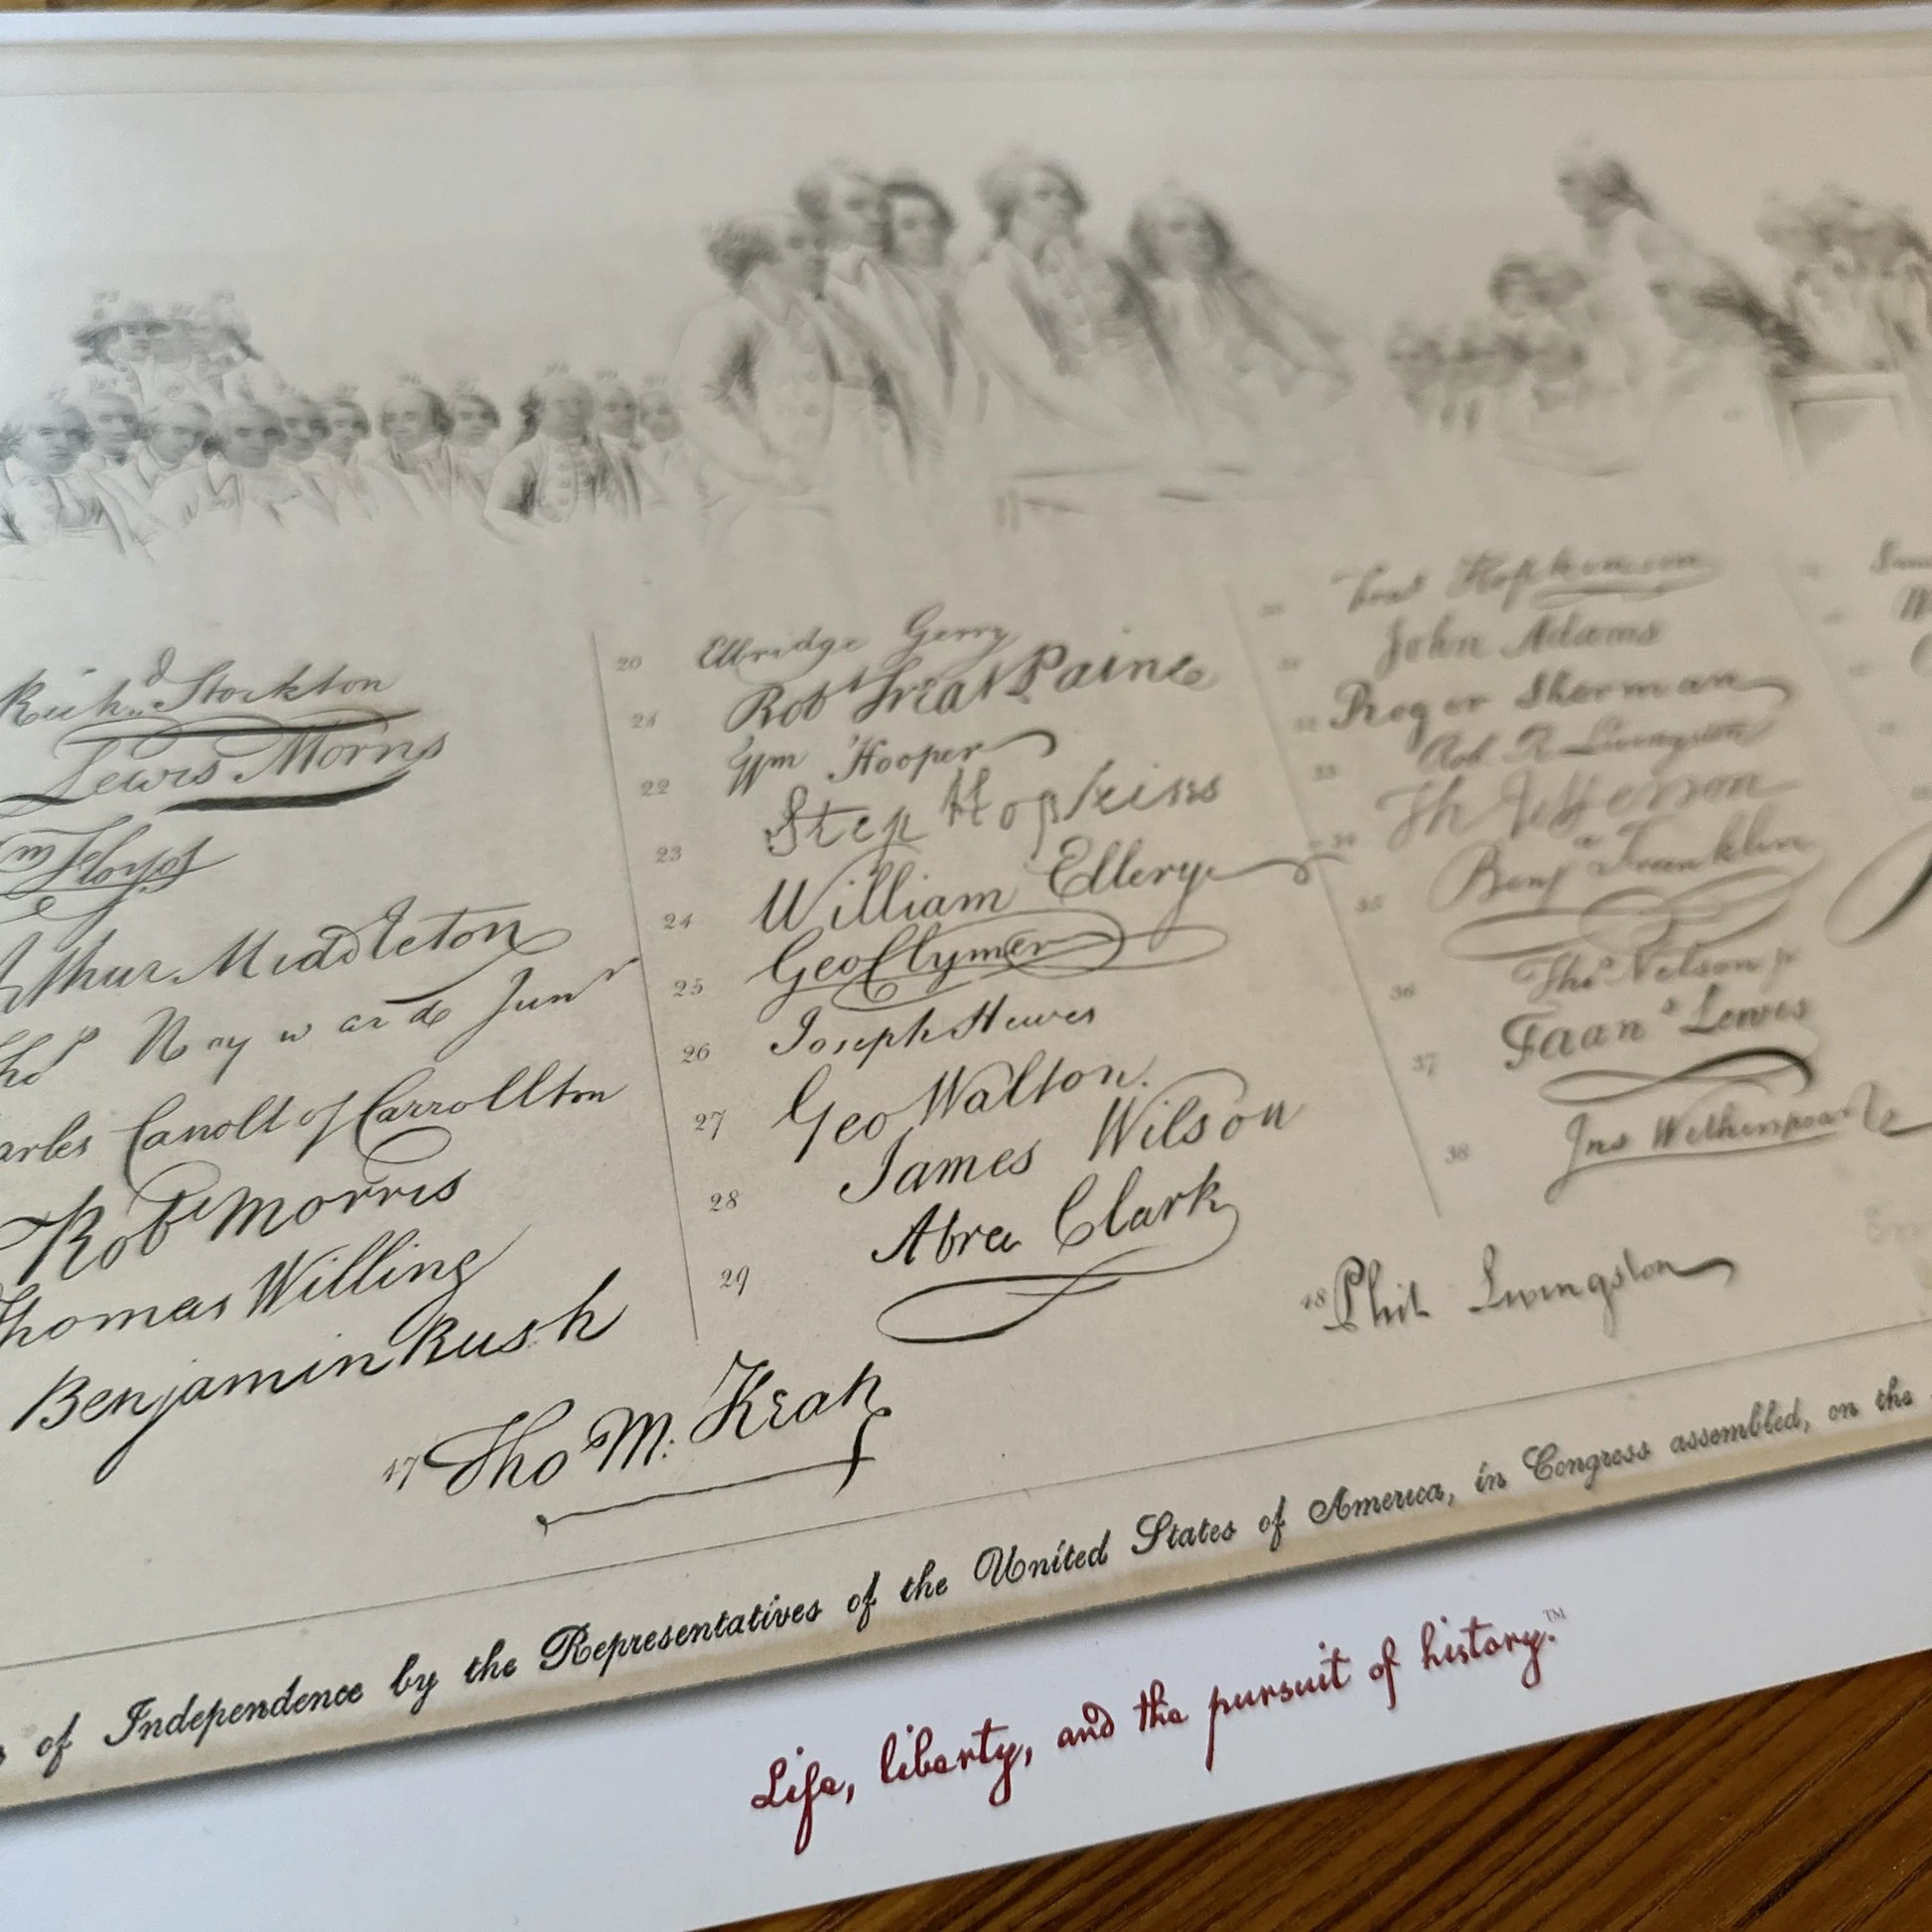 Rich.d Stockton
Lewis Morris
m Floyd
Arthur Middleton
Tho.s Hayward Jun.r
arles Carroll of Carrollton
Rob.t Morris
Thomas Willing
Benjamin Rush
47 Tho.s M: Kean
20 Elbridge Gerry
21 Rob.t Treat Paine
22 W.m Hooper
23 Step Hopkins
24 William Ellery
25 Geo Clymer
26 Joseph Hewes
27 Geo Walton.
28 James Wilson
29 Abra Clark
30 Fra.s Hopkinson
31 John Adams
32 Roger Sherman
33 Rob R Livingston
34 Th Jefferson
35 Benj.a Franklin
36 Tho.s Nelson jr
37 Fran.s Lewis
38 Jno Witherspoon
48 Phil Livingston
of Independence by the Representatives of the United States of America, in Congress assembled, on the
Life, liberty, and the pursuit of history.™